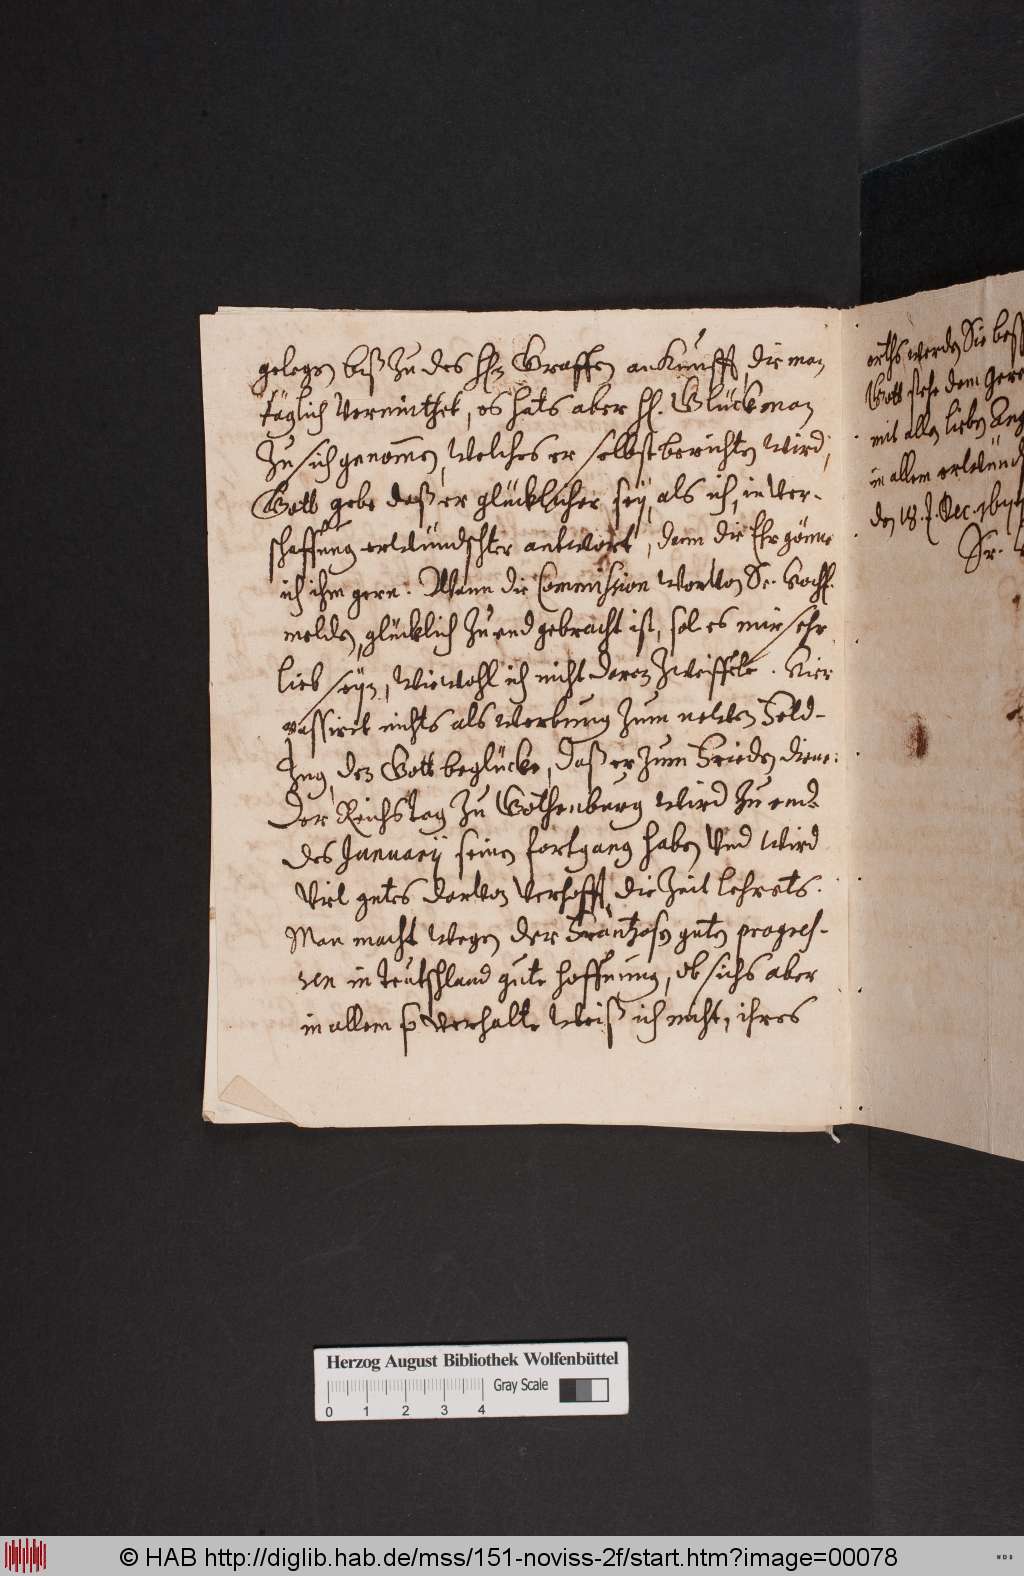 gelegen biß zu des Hn Graffen ankunfft, die man
täglich vermuthet, es hats aber H. Glückman
zu sich genom̄en, welches er selbst berichten wird,
Gott gebe daß er glücklicher seÿ, als ich, in ver-
schaffung erwündschter antwort, denn die Ehr gönne
ich ihm gern. Wenn die Commission worvon Sr.
melden, glücklich zu end gebracht ist, sol es mir sehr
lieb seÿn, wiewohl ich nicht daran zweiffele. Hier
passiret nichts als werbung zum newen Feld-
Zug, den Gott beglücke, daß er zum Frieden diene.
Der Reichstag zu Gothenburg wird zu end
des Januarij seinen fortgang haben vnd wird
viel gutes darvon verhofft, die Zeit lehrets.
Man macht wegen der Frantzosen guten progres-
sen in Teutschland gute hoffnung, ob sichs aber
in allem so verhalte weiß ich nicht, ihres
orths werden Sie bess
Gott stehe dem
mit allen lieben Ang
in allem erwünd
den 18. Dec. 167
Sr.
Herzog August Bibliothek Wolfenbüttel
Gray Scale
0 1 2 3 4
© HAB http://diglib.hab.de/mss/151-noviss-2f/start.htm?image=00078